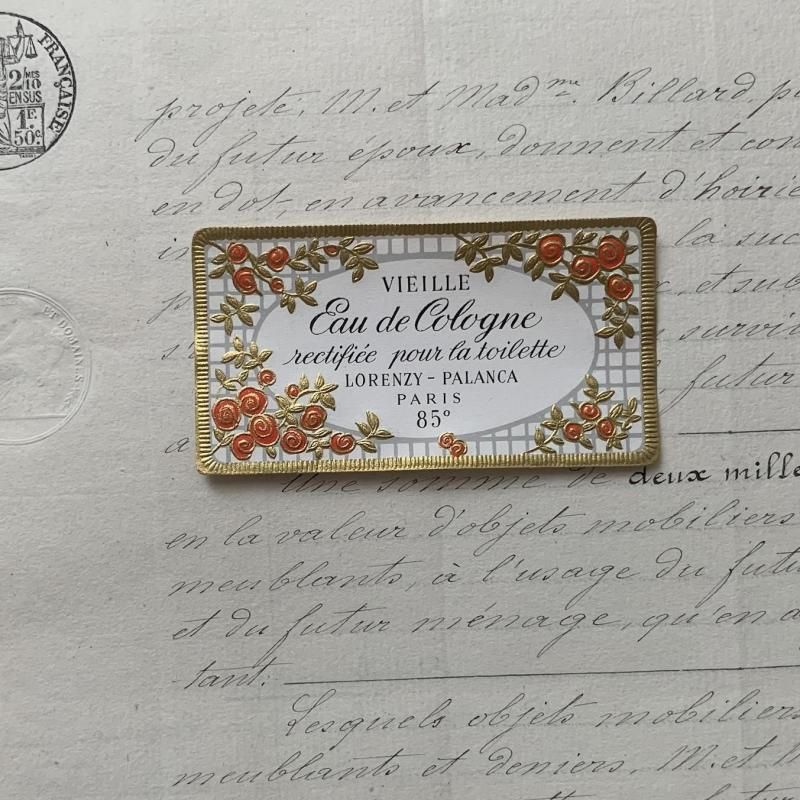 FRANÇAISE
2/10 MES
EN SUS
1F.
50c.
projeté, M. et Mad me. Billard, p
du futur époux, donnent et con
en dot, en avancement d'hoirie
la suc
et sub
survi
futur
VIEILLE
Eau de Cologne
rectifiée pour la toilette
LORENZY - PALANCA
PARIS
85°
Une somme de deux mille
en la valeur d'objets mobiliers
meublants, à l'usage du futu
et du futur ménage, qu'en a
-tant.
Lesquels objets mobiliers
meublants et deniers, M. et M